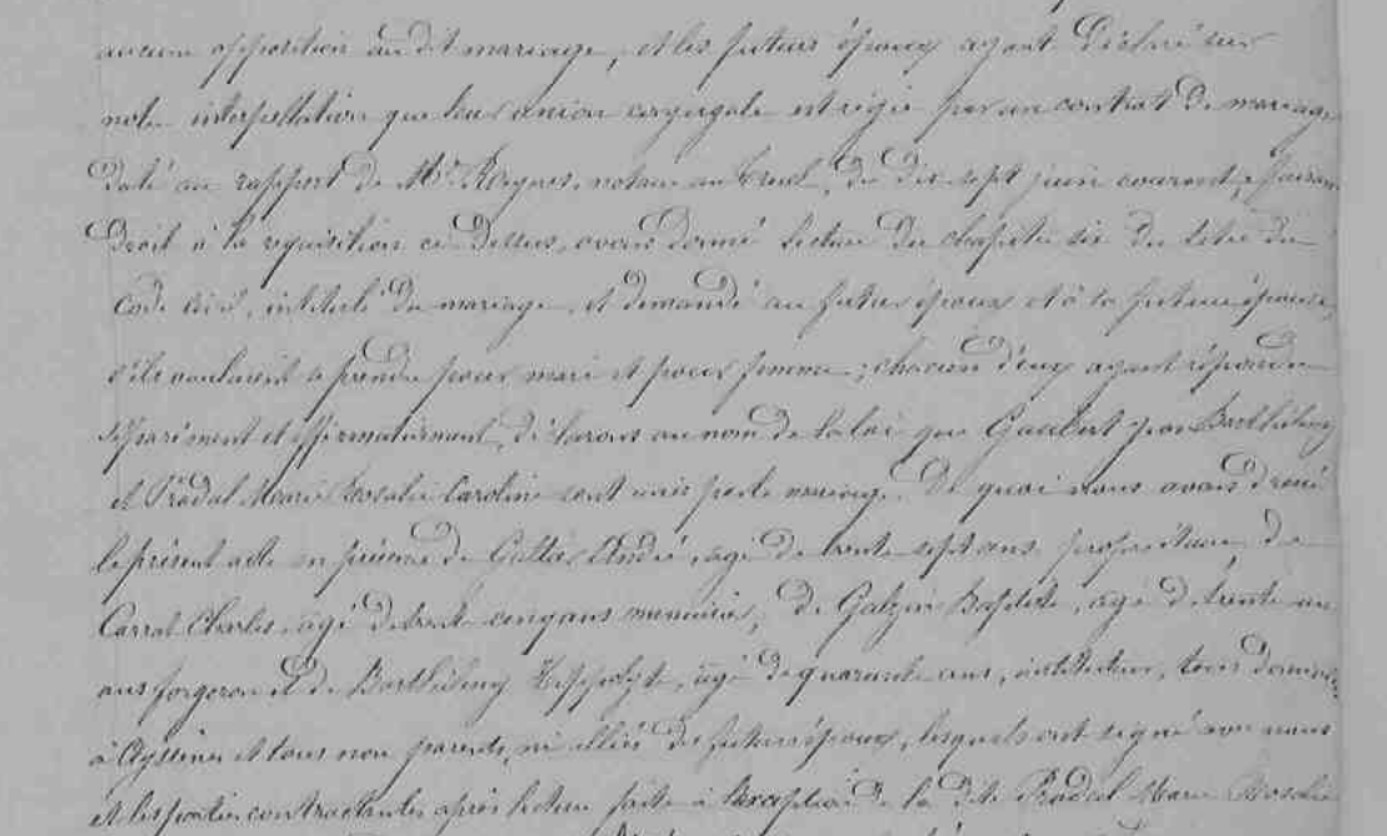 aucune opposition au dit mariage, et les futurs époux ayant déclaré sur
notre interpellation que leur union conjugale est régie par un contrat de mariage
daté au rapport de Me notaire au Truel, du dix sept juin courant, faisant
droit à la requisition ci dessus, avons donné lecture du chapitre six du titre du
code civil, intitulé du mariage, et demandé au futur époux et à la future épouse
s'ils voulaient se prendre pour mari et pour femme; chacun d'eux ayant répondu
séparément et affirmativement, déclarons au nom de la loi que Gaubert Barthélemy
et Pradal Marie Rosalie Caroline sont unis par le mariage. De quoi nous avons dressé
le présent acte en présence de André, agé de trente sept ans propriétaire, de
Carrat Charles, agé de trente cinq ans menuisier, de Galzin Baptiste, agé de trente un
ans forgeron et de Barthélemy Hippolyte, agé de quarante ans, instituteur, tous domiciliés
à Ayssènes et tous non parents, ni alliés des futurs époux, lesquels ont signé avec nous
et les parties contractantes après lecture faite à l'exception de la dite Pradal Marie Rosalie